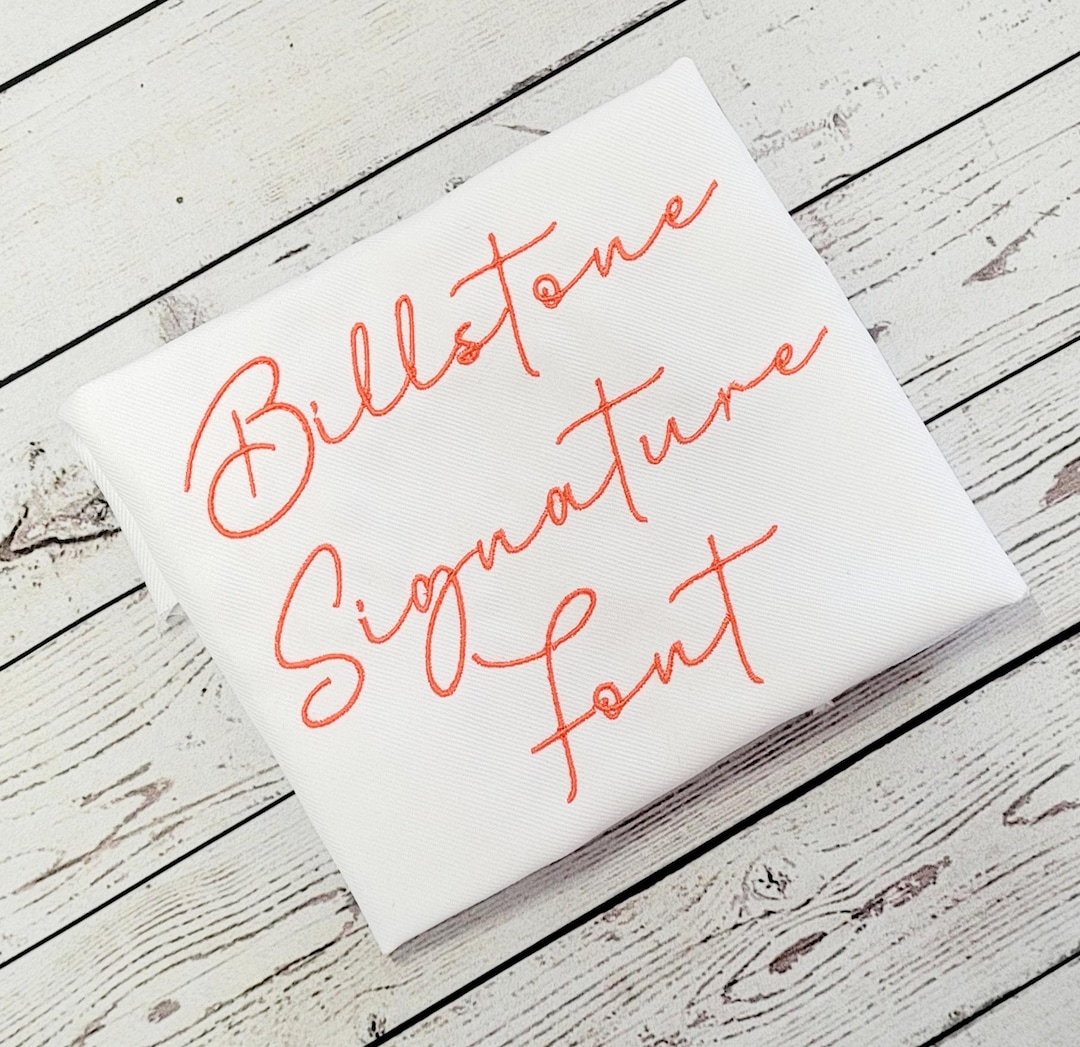 Billstone
Signature
font